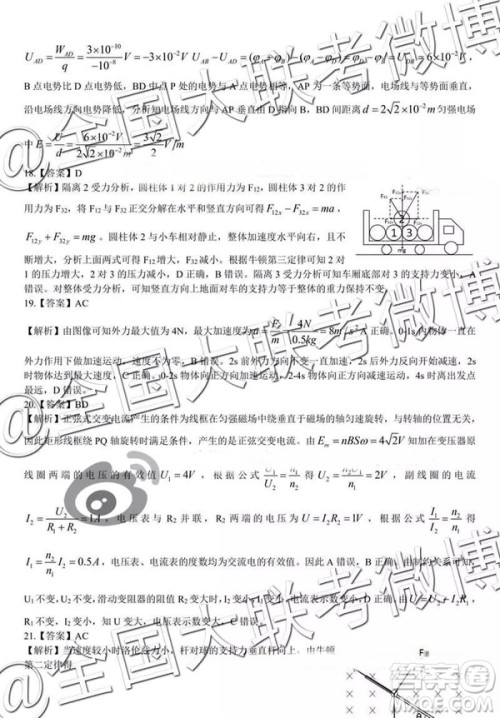 U_{AD} = \frac{W_{AD}}{q} = \frac{3×10^{-10}}{-10^{-8}} V = -3×10^{-2} V  U_{AB} - U_{AD} = (φ_A - φ_B) - (φ_A - φ_D) = φ_D - φ_B = U_{DB} = 6×10^{-2} V，
B 点电势比 D 点电势低，BD 中点 P 处的电势与 A 点电势相等，AP 为一条等势面，电场线与等势面垂直，
沿电场线方向电势降低，分析知电场线方向与 AP 垂直由 D 指向 B，BD 间距离 d = 2\sqrt{2}×10^{-2} m 匀强电场
中 E = \frac{U}{d} = \frac{6×10^{-2} V}{2\sqrt{2}×10^{-2} m} = \frac{3\sqrt{2}}{2} V/m
18.【答案】D
【解析】隔离 2 受力分析，圆柱体 1 对 2 的作用力为 F₁₂，圆柱体 3 对 2 的作用
力为 F₃₂，将 F₁₂ 与 F₃₂ 正交分解在水平和竖直方向可得 F_{12x} - F_{32x} = ma，
F_{12y} + F_{32y} = mg。圆柱体 2 与小车相对静止，整体加速度水平向右，且不
断增大，分析上面两式可得 F₁₂增大，F₃₂减小。根据牛顿第三定律可知 2 对
1 的压力增大，2 对 3 的压力减小，D 正确，B 错误。隔离 3 受力分析可知车厢底部对 3 的支持力变小，A
错误。对整体受力分析，竖直方向上地面对车的支持力等于整体的重力保持不变。
19.【答案】AC
【解析】由图像可知外力最大值为 4N，最大加速度为 a = \frac{F}{m} = \frac{4N}{0.5kg} = 8m/s² A 正确。0-1s 内物体一直在
外力作用下做加速运动，速度不为零，B 错误。2s 前外力方向与物体运动方向一致，2s 后外力方向反向，2s
时物体达到最大速度，C 正确。0-2s 物体向正方向加速运动，2-4s 物体向正方向减速运动，4s 时离出发点
最远，D 错误。
20.【答案】BD
【解析】正弦式交变电流产生的条件为线框在匀强磁场中绕垂直于磁场的轴匀速旋转，与转轴的位置无关，
因此矩形线框绕 PQ 轴旋转时满足条件，产生的是正弦交变电流。由 E_m = nBSω = 4\sqrt{2}V 可知加在变压器原
线圈两端的电压的有效值 U₁ = 4V，根据公式 \frac{U_1}{U_2} = \frac{n_1}{n_2} 得 U_2 = \frac{n_2}{n_1} U_1 = 2V，副线圈的电流
I_2 = \frac{U_2}{R_1 + R_2} = 1A，电压表与 R₂ 并联，R₂ 两端的电压为 U = I_2 R_2 = 1V，根据公式 \frac{I_1}{I_2} = \frac{n_2}{n_1} 得
I_1 = \frac{n_2}{n_1} I_2 = 0.5A，电压表、电流表的度数均为交流电的有效值。因此 A 错误，B 正确。由
U₁不变，U₂不变，滑动变阻器的阻值 R₂ 变大时，I₂ 变小，I₁ 变小，C 错误。
R₁不变，I₂变小，知 U 变大，电压表示数变大，D 正确。
21.【答案】AC
【解析】当速度较小时洛伦兹力小，杆对球的支持力垂直杆向上。由牛顿
第二定律得
F₁₂
F₃₂
2
1
3
F洛
@全国大联考微博
答案圈